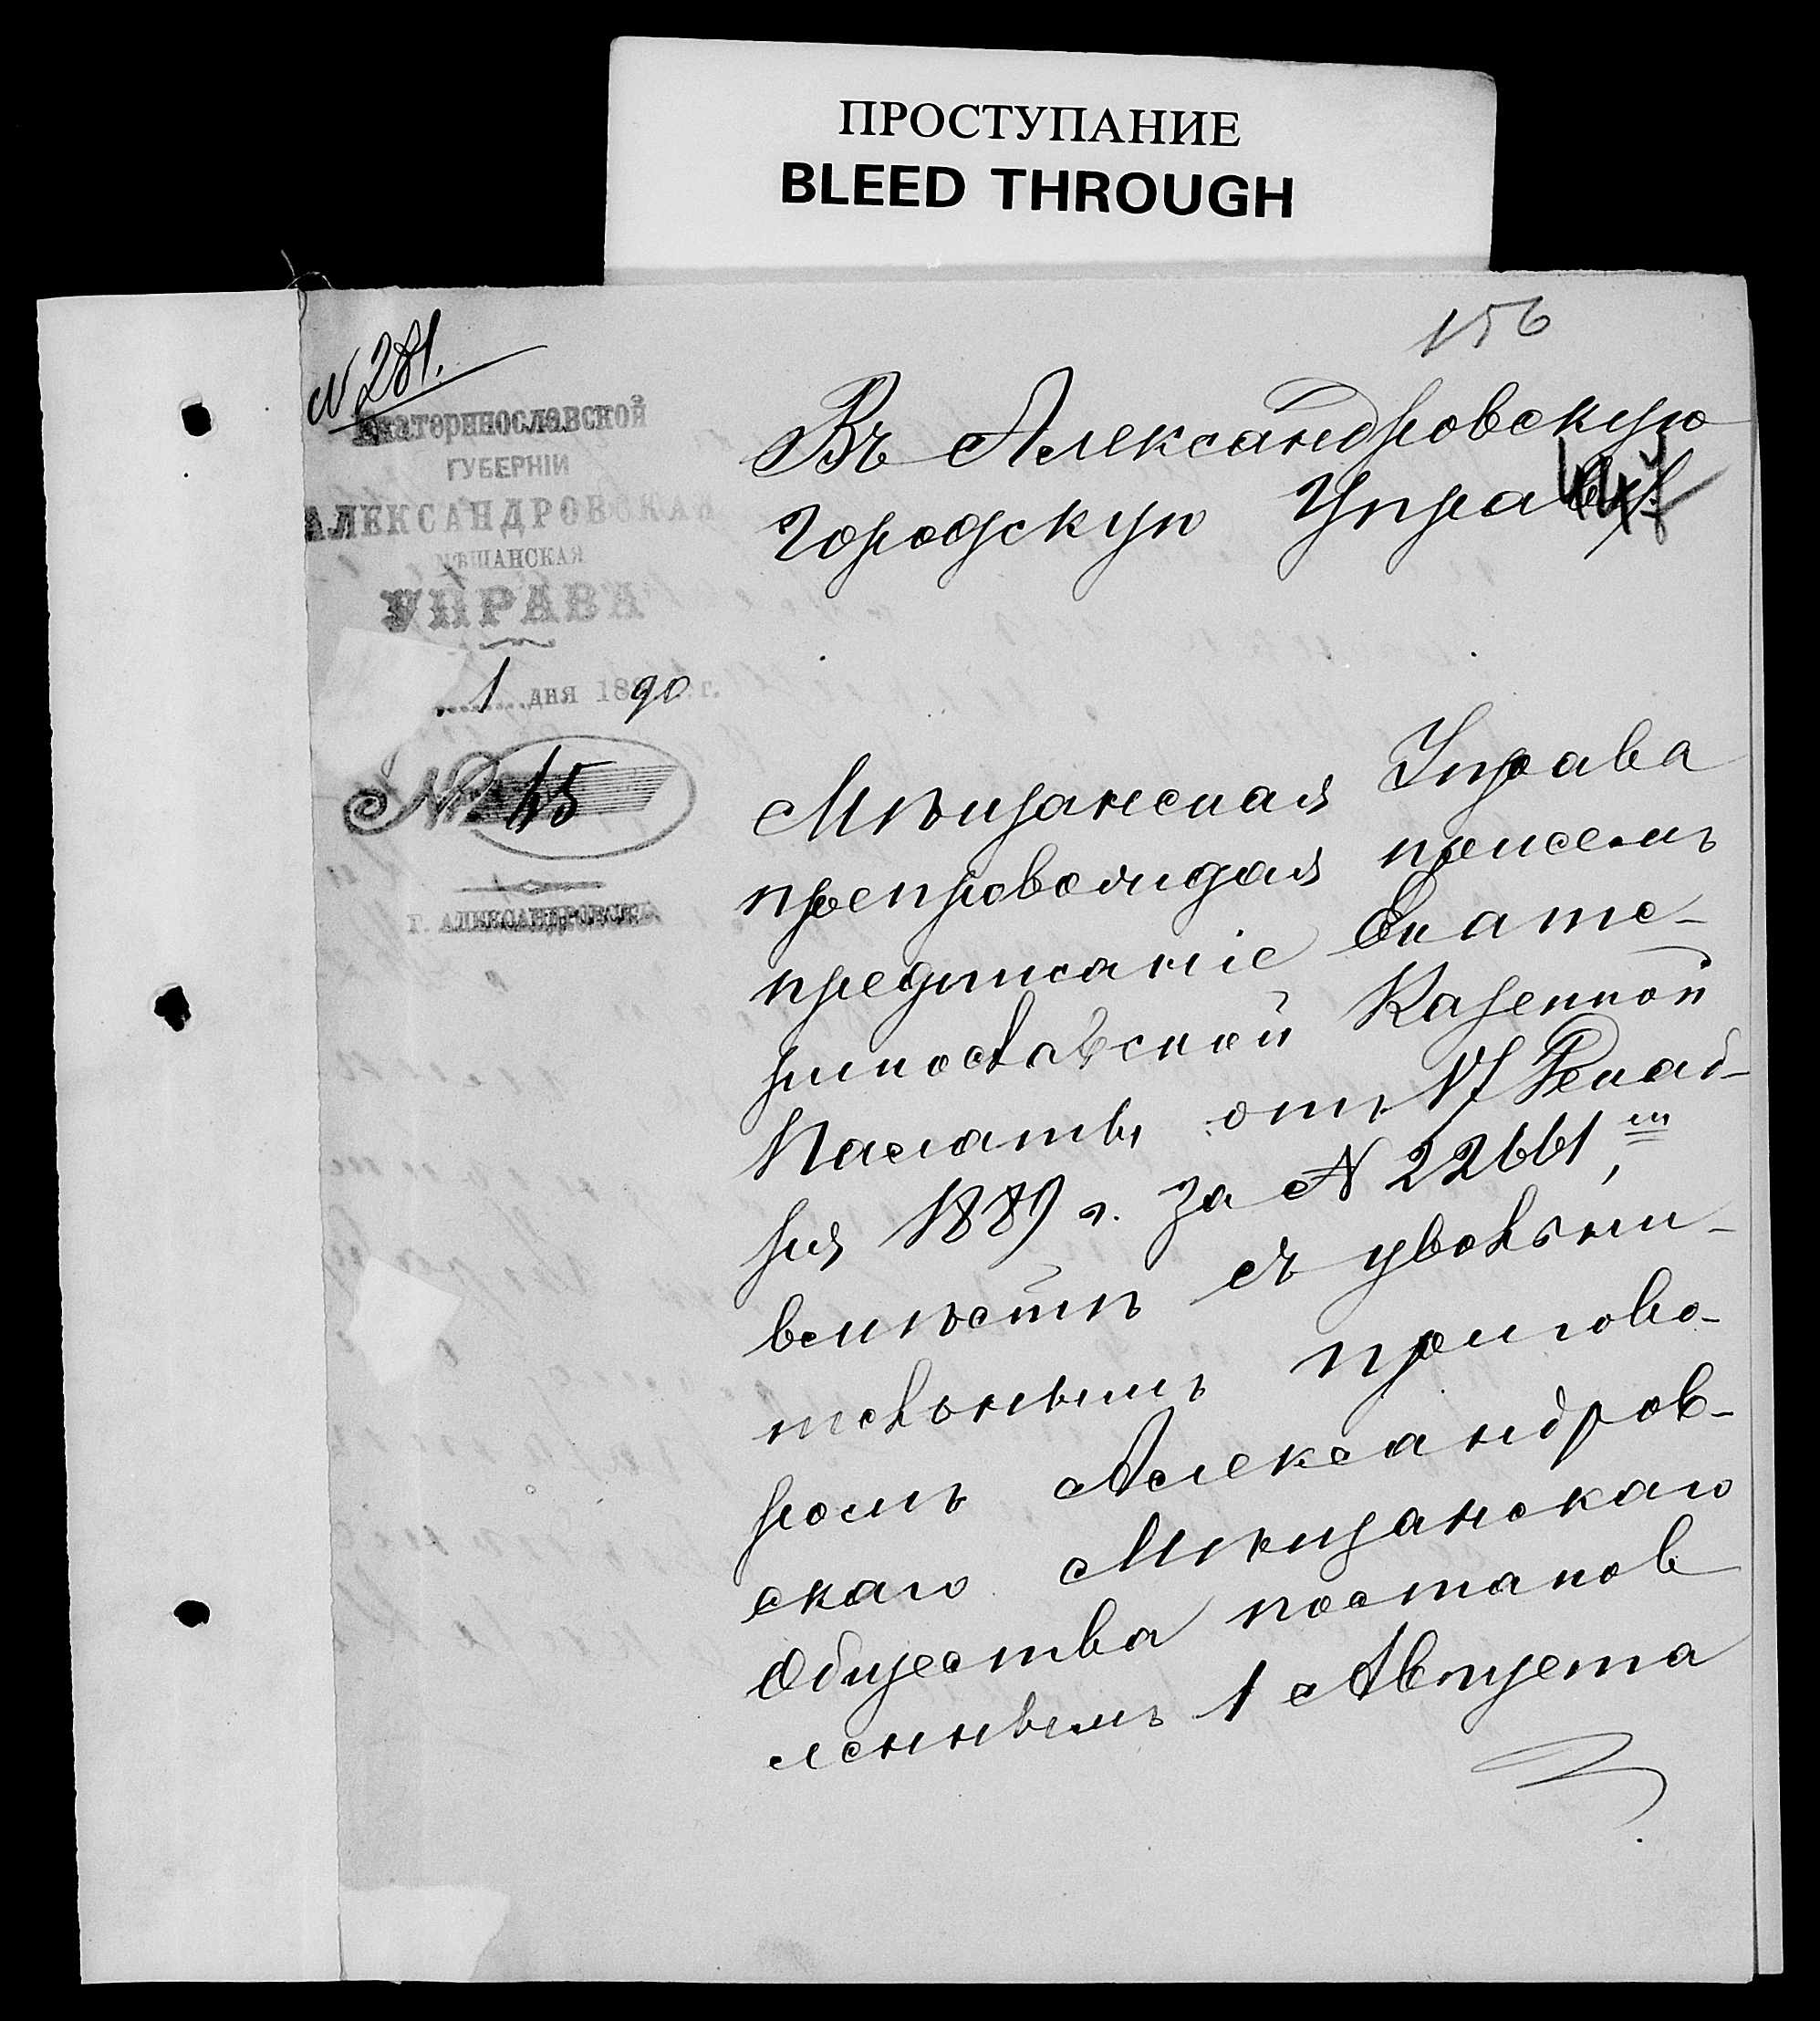 ПРОСТУПАНИЕ
BLEED THROUGH
156
N 281.
Екатеринославской
ГУБЕРНІИ
АЛЕКСАНДРОВСКАЯ
МѢЩАНСКАЯ
УПРАВА
1 дня 1890 г.
№ 45
Г. АЛЕКСАНДРОВСКЪ
Въ Александровскую
Городскую Управу
Мѣщанская Управа
препровождая присемъ
предписаніе Екате-
ринославской Казенной
Палаты отъ 17 Декаб-
ря 1889 г. за N 22661,
вмѣстѣ съ увольни-
тельнымъ пригово-
ромъ Александров-
скаго Мѣщанскаго
Общества постанов
леннымъ 1 Августа